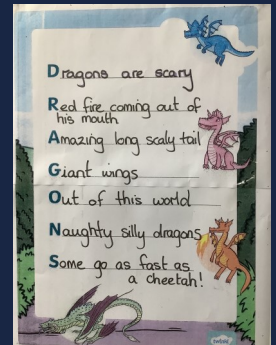 Dragons are scary
Red fire coming out of
his mouth
Amazing long scaly tail
Giant wings
Out of this world
Naughty silly dragons
Some go as fast as
a cheetah!
twinkl